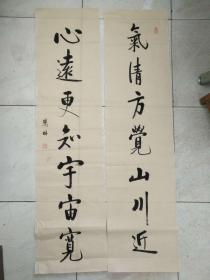 氣清方覺山川近
心遠更知宇宙寬